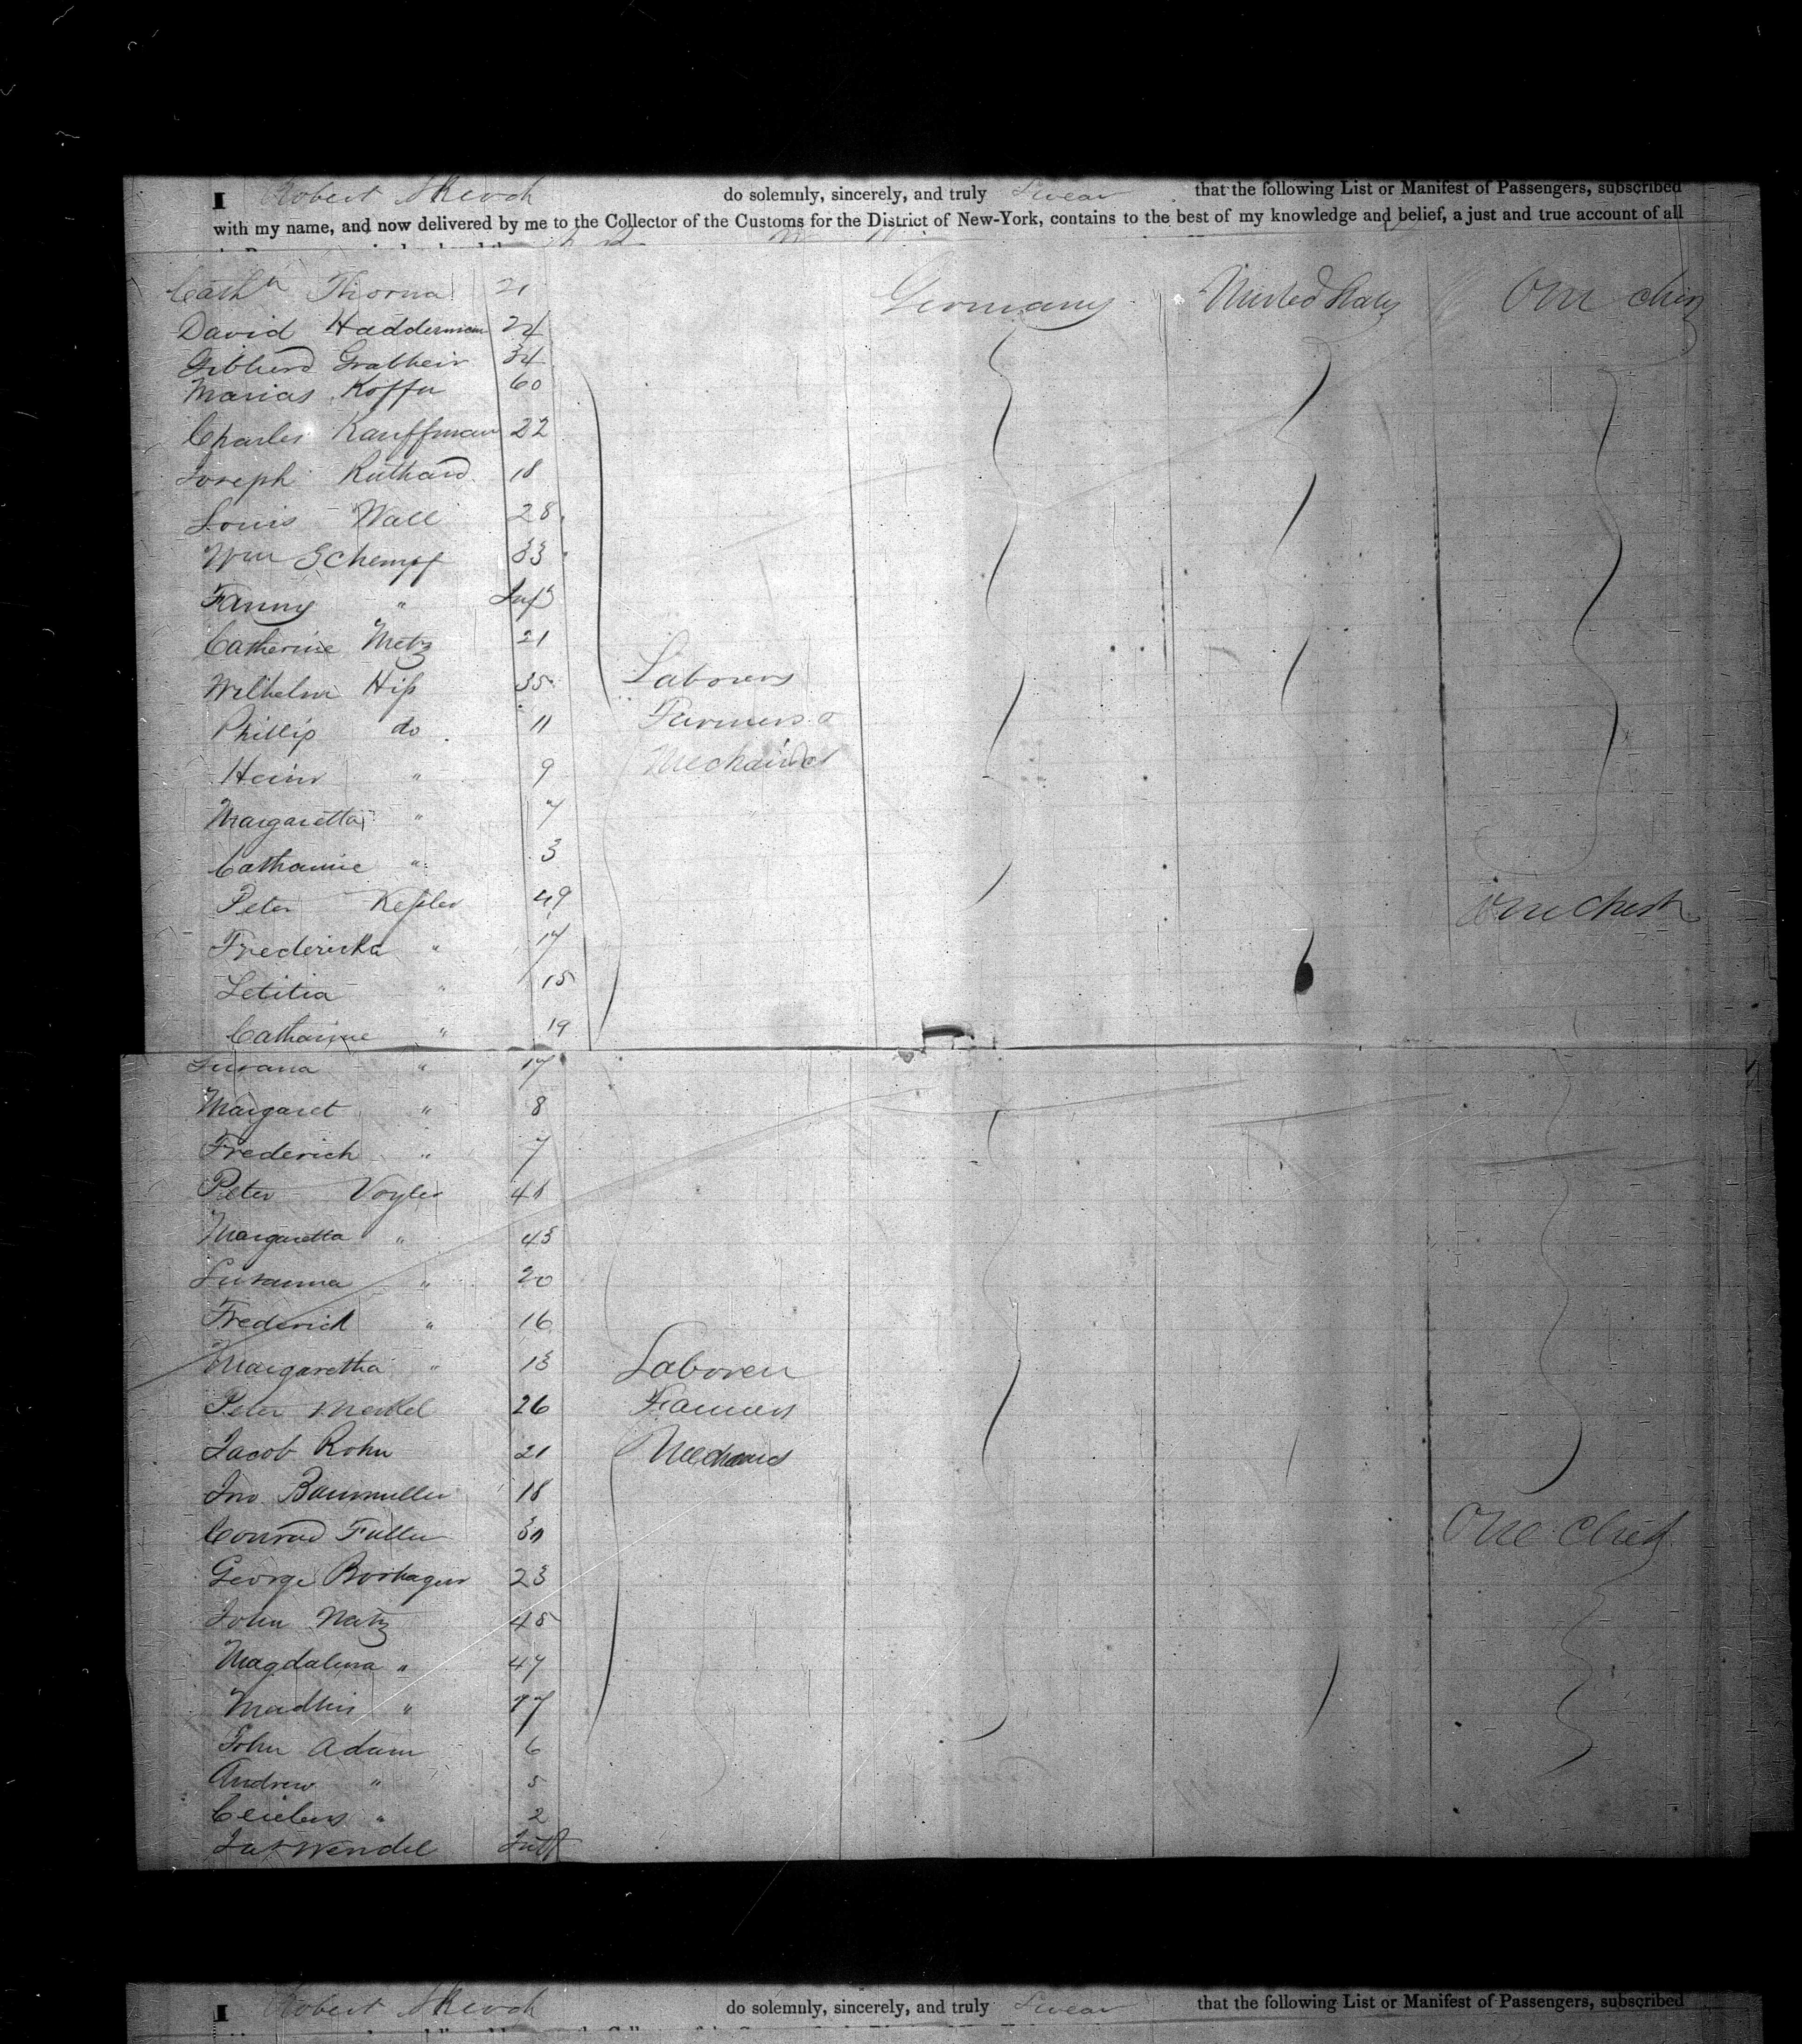 I Robert Skeoch do solemnly, sincerely, and truly Swear that the following List or Manifest of Passengers, subscribed
with my name, and now delivered by me to the Collector of the Customs for the District of New-York, contains to the best of my knowledge and belief, a just and true account of all
Cathn Thoma 21 Germany United States One
David Hadderman 24
34
Marias Koffer 60
Charles Kauffman 22
Joseph Ruthard 18
Louis Wall 28
Wm Schempf 33
Fanny " Inft
Catherine Metz 21
Wilhelm Hiss 35 Laborers
Phillip do 11 Farmers &
Heinr " 9 Mechanics
Margaretta " 7
Catharine " 3
Peter Kessler 49 One Chest
Fredericka " 17
Letitia " 15
Catharine " 19
Susana " 17
Margaret " 8
Frederich " 7
Peter Vogler 48
Margaretta " 43
Susanna " 20
Frederick " 16
Margaretha " 13 Laborers
Peter Merkel 26 Farmers
Jacob Rohn 21 Mechanics
Jno Baumuller 18
Conrad Fuller 30 One Chest
George 23
John Matz 45
Magdalena " 47
" 17
John Adam 6
Andrew " 5
" 2
Wendel Inft
I Robert Skeoch do solemnly, sincerely, and truly Swear that the following List or Manifest of Passengers, subscribed